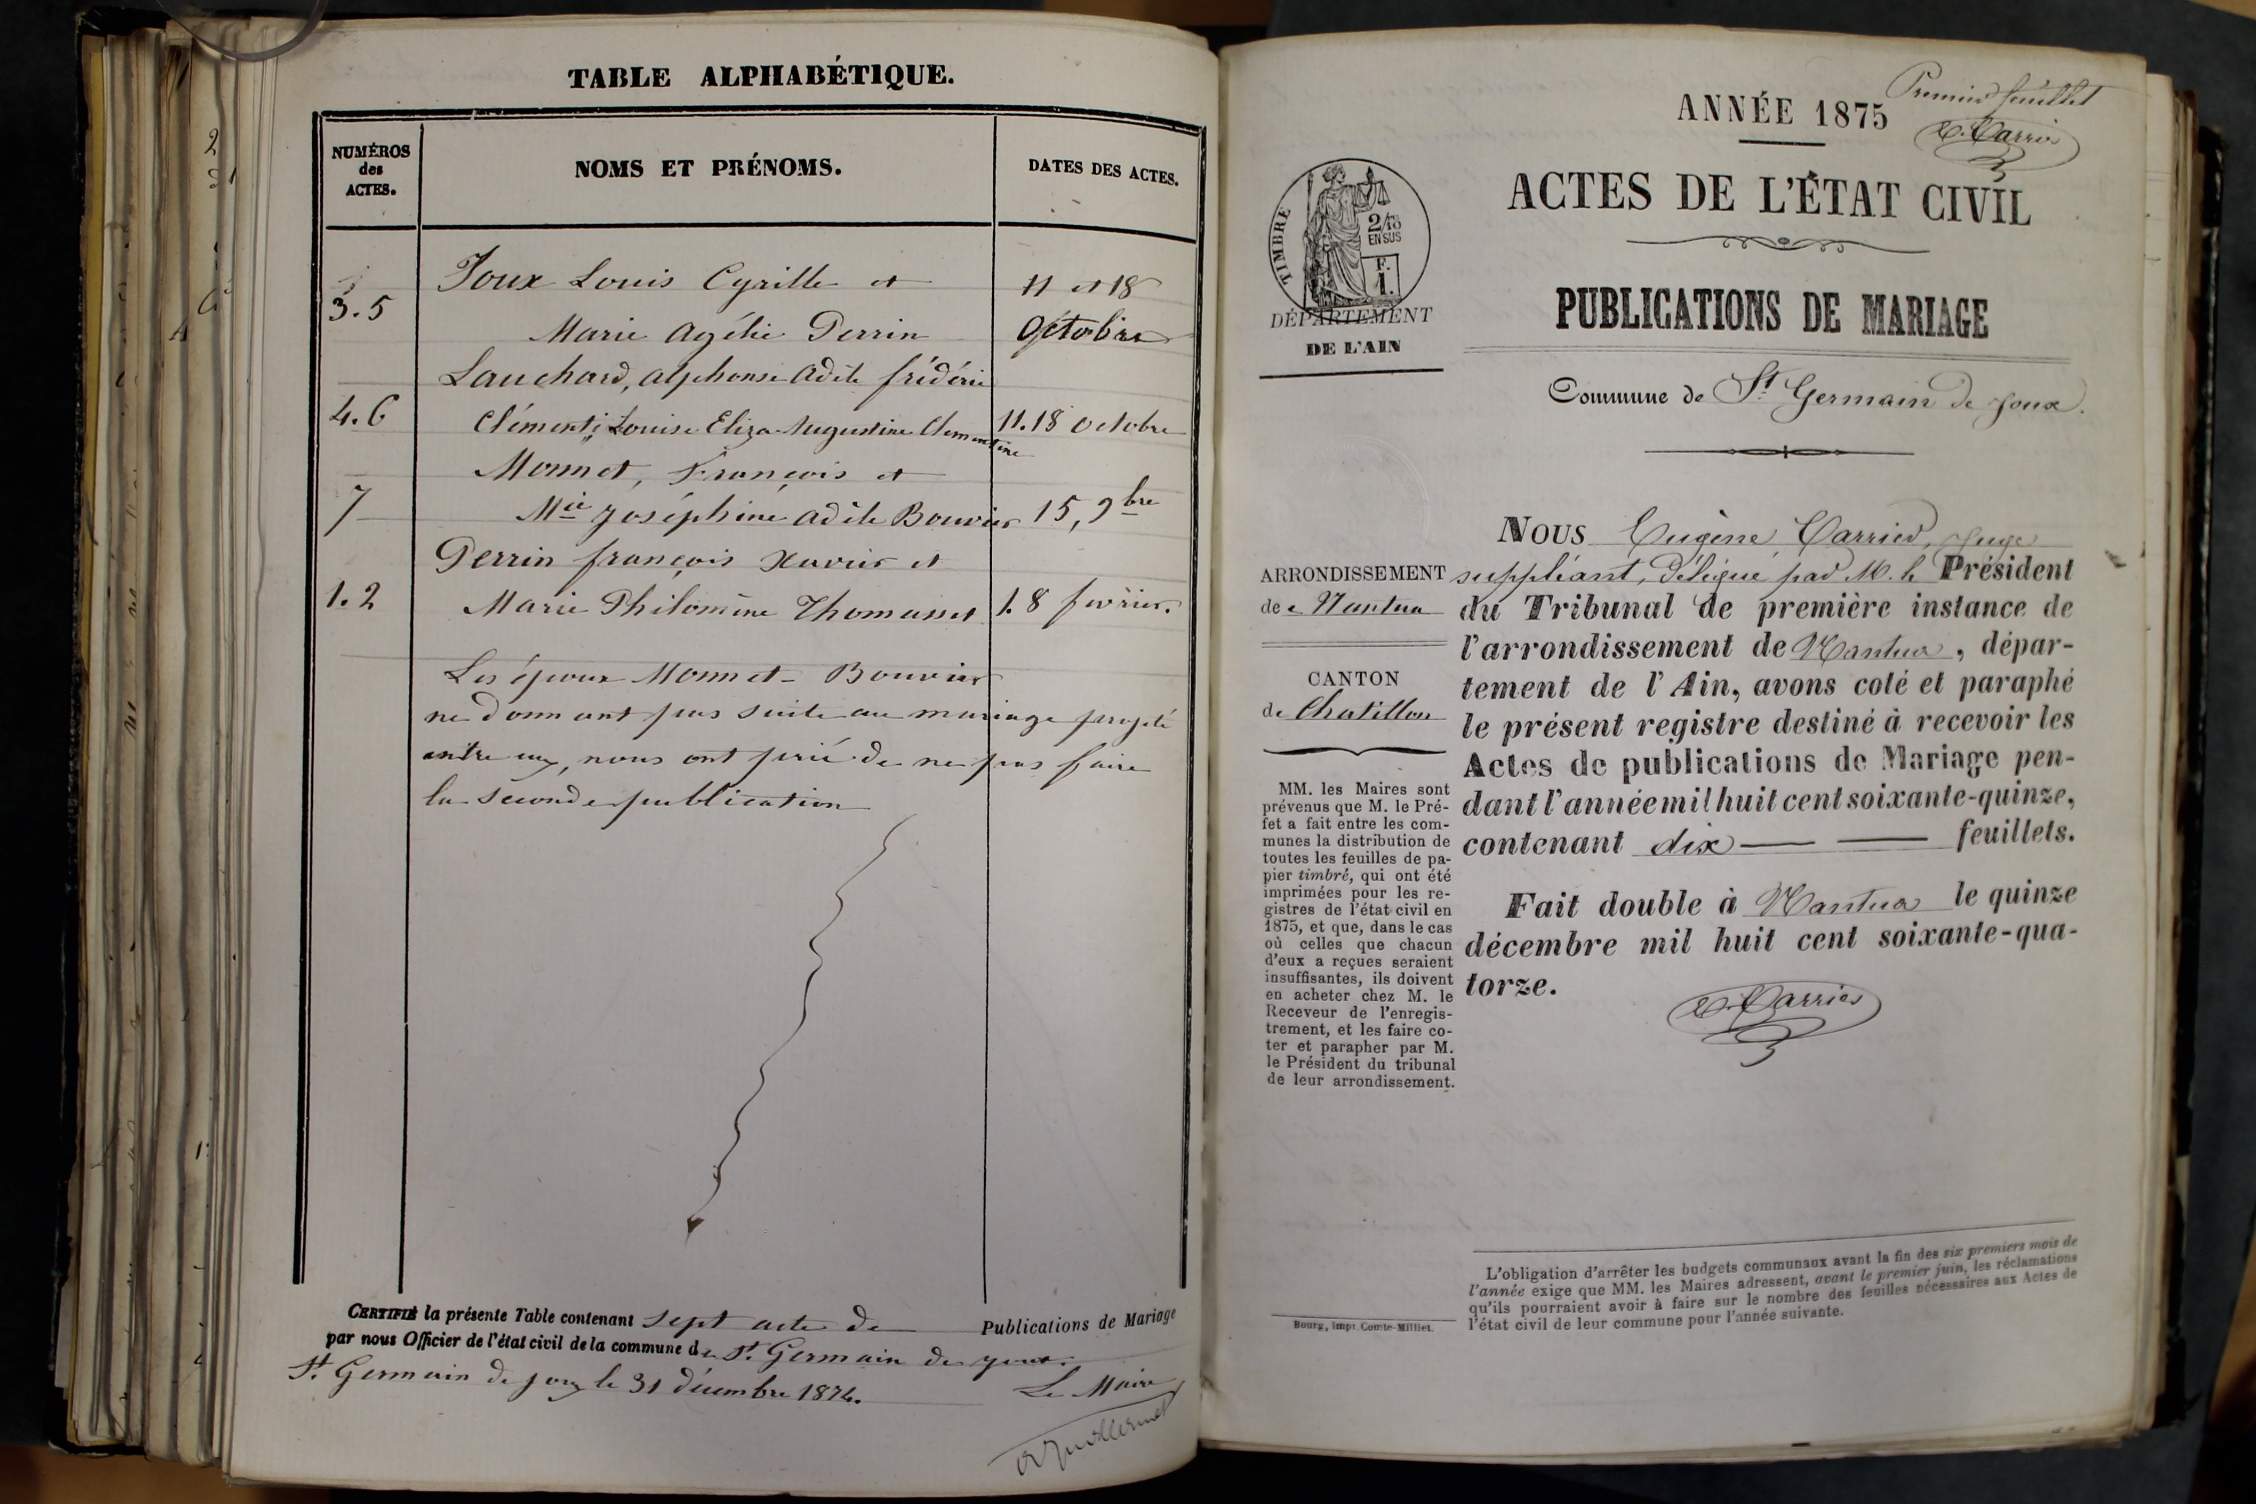 TABLE ALPHABÉTIQUE.
NUMÉROS
des
ACTES.
NOMS ET PRÉNOMS.
DATES DES ACTES.
Joux Louis Cyrille et
11 et 18
3.5
Marie Agélie Perrin
Octobre
Lauchard, alphonse adèle frédéric
4.6
Clémenti, Louise Eliza Augustine Clementine
11.18 octobre
Monnet, François et
7
Mie Joséphine adèle Bouvier
15, 9bre
Perrin françois Xavier et
1.2
Marie Philomène Thomasset
1.8 février.
Les époux Monnet-Bouvier
ne donnant pas suite au mariage projeté
entre eux, nous ont prié de ne pas faire
la seconde publication
CERTIFIÉ la présente Table contenant sept actes de Publications de Mariage
par nous Officier de l'état civil de la commune de St. Germain de Joux.
St. Germain de Joux le 31 décembre 1874.
Le Maire
Premier feuillet
ANNÉE 1875
E. Carrier
ACTES DE L'ÉTAT CIVIL
PUBLICATIONS DE MARIAGE
TIMBRE
2/10
EN SUS
F.
1.
DÉPARTEMENT
DE L'AIN
Commune de St. Germain de Joux.
ARRONDISSEMENT
de Nantua
CANTON
de Chatillon
MM. les Maires sont
prévenus que M. le Pré-
fet a fait entre les com-
munes la distribution de
toutes les feuilles de pa-
pier timbré, qui ont été
imprimées pour les re-
gistres de l'état civil en
1875, et que, dans le cas
où celles que chacun
d'eux a reçues seraient
insuffisantes, ils doivent
en acheter chez M. le
Receveur de l'enregis-
trement, et les faire co-
ter et parapher par M.
le Président du tribunal
de leur arrondissement.
NOUS Eugène Carrier, Juge
suppléant, délégué par M. le Président
du Tribunal de première instance de
l'arrondissement de Nantua, dépar-
tement de l'Ain, avons coté et paraphé
le présent registre destiné à recevoir les
Actes de publications de Mariage pen-
dant l'année mil huit cent soixante-quinze,
contenant dix feuillets.
Fait double à Nantua le quinze
décembre mil huit cent soixante-qua-
torze.
E. Carrier
L'obligation d'arrêter les budgets communaux avant la fin des six premiers mois de
l'année exige que MM. les Maires adressent, avant le premier juin, les réclamations
qu'ils pourraient avoir à faire sur le nombre des feuilles nécessaires aux Actes de
l'état civil de leur commune pour l'année suivante.
Bourg, impr. Comte-Milliet.